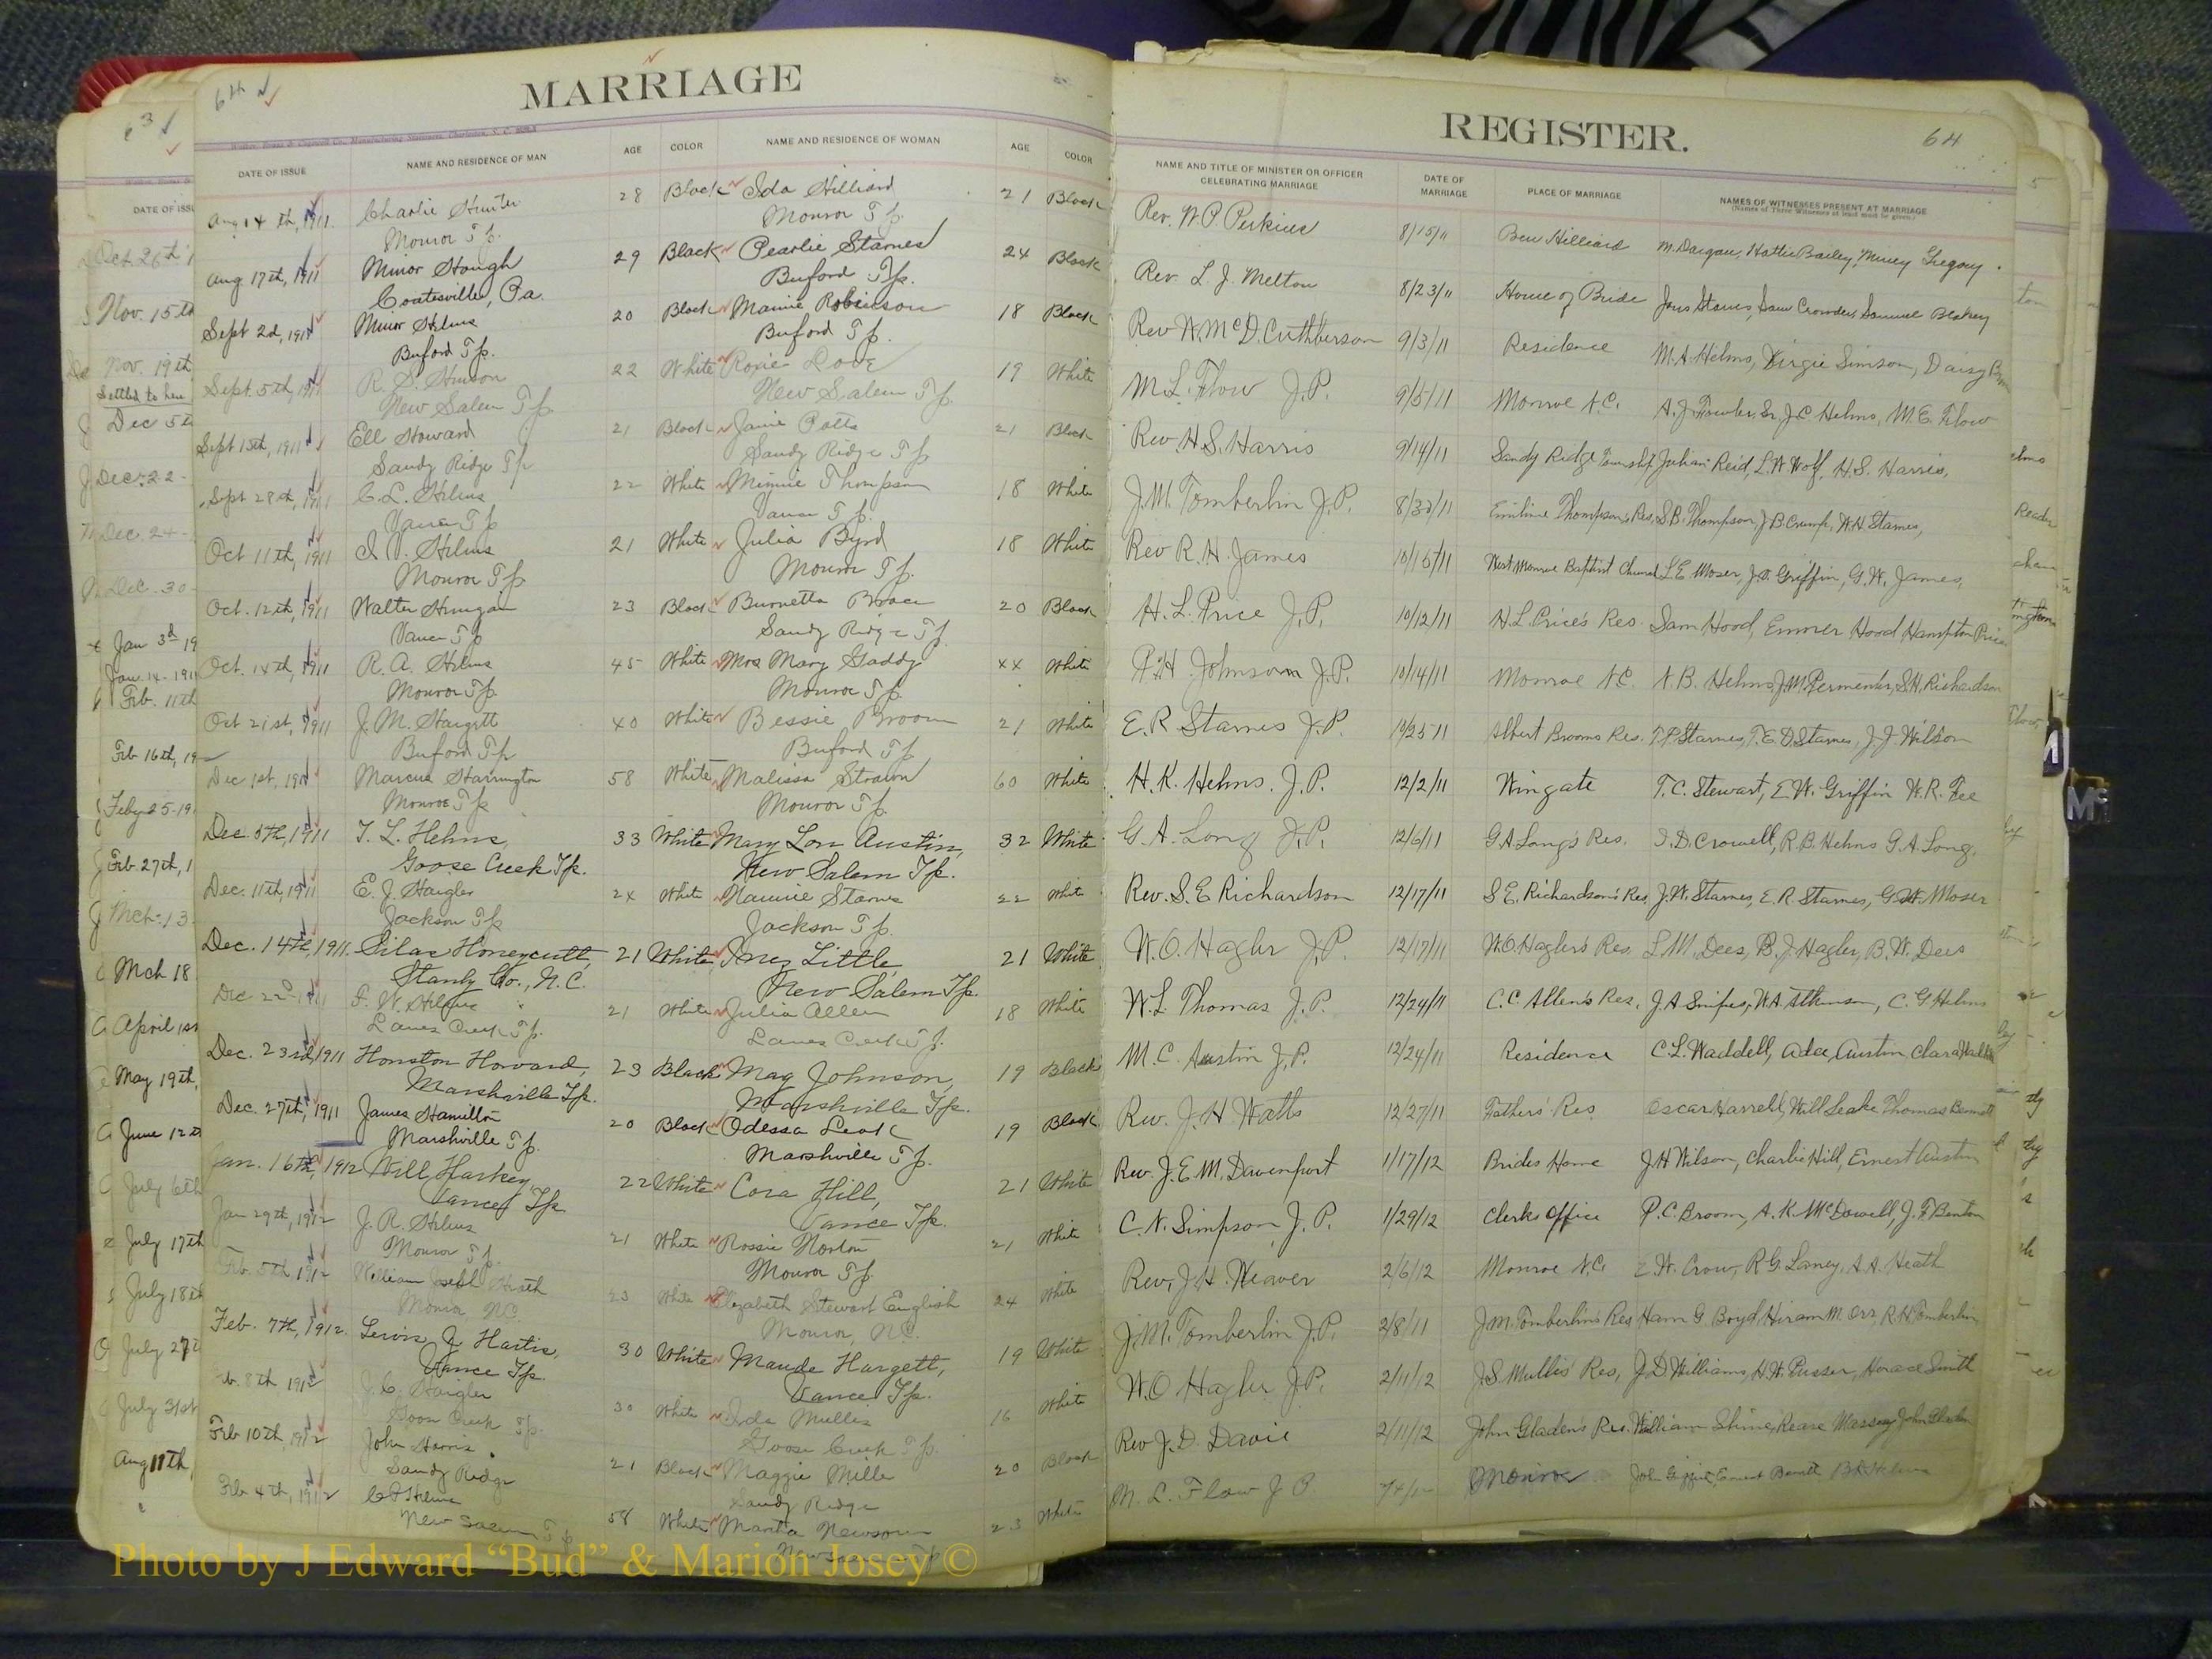 64
MARRIAGE
DATE OF ISSUE NAME AND RESIDENCE OF MAN AGE COLOR NAME AND RESIDENCE OF WOMAN AGE COLOR
Aug 14th, 1911. Charlie Hunter 28 Black Ida Hilliard 21 Black
Monroe Tp. Monroe Tp.
Aug 17th, 1911 Minor Hough 29 Black Pearlie Starnes 24 Black
Coatesville, Pa. Buford Tp.
Sept 2d, 1911 Minor Helms 20 Black Mamie Robinson 18 Black
Buford Tp. Buford Tp.
Sept. 5th, 1911 22 White Roxie Love 19 White
New Salem Tp New Salem Tp.
Sept 13th, 1911 Ell Howard 21 Black Janie Potts 21 Black
Sandy Ridge Tp Sandy Ridge Tp
Sept 28th, 1911 C. L. Helms 22 White Minnie Thompson 18 White
Vance Tp Vance Tp.
Oct 11th, 1911 Helms 21 White Julia Byrd 18 White
Monroe Tp Monroe Tp.
Oct. 12th, 1911 Walter 23 Black Burnetta 20 Black
Vance Tp Sandy Ridge Tp.
Oct. 14th, 1911 R. A. Helms 45 White Mrs Mary Gaddy xx White
Monroe Tp. Monroe Tp.
Oct 21st, 1911 J. M. Hargett 40 White Bessie Broom 21 White
Buford Tp Buford Tp
Dec 1st, 1911 Marcus Harrington 58 White Malissa Strawn 60 White
Monroe Tp Monroe Tp.
Dec. 5th, 1911 T. L. Helms, 33 White Mary Lou Austin, 32 White
Goose Creek Tp. New Salem Tp.
Dec. 11th, 1911 E. J. Haigler 24 White Nannie Starnes 22 White
Jackson Tp Jackson Tp.
Dec. 14th, 1911. Silas Honeycutt, 21 White Inez Little, 21 White
Stanly Co., N.C. New Salem Tp.
Dec 22nd, 1911 21 White Julia Allen 18 White
Lanes Creek Tp. Lanes Creek Tp.
Dec. 23rd, 1911 Houston Howard, 23 Black Mag Johnson, 19 Black
Marshville Tp. Marshville Tp.
Dec. 27th, 1911 James Hamilton 20 Black Odessa Leak 19 Black
Marshville Tp. Marshville Tp.
Jan. 16th, 1912 Will Harkey, 22 White Cora Hill, 21 White
Vance Tp. Vance Tp.
Jan 29th, 1912 J. R. Helms 21 White Rossie Norton 21 White
Monroe Tp. Monroe Tp.
Feb. 5th 1912 William Heath 23 White Elizabeth Stewart English 24 White
Monroe NC. Monroe, N.C.
Feb. 7th, 1912. Levis J. Hartis, 30 White Maude Hargett, 19 White
Vance Tp. Vance Tp.
Feb. 8th 1912 J. C. Haigler 30 White Mullis 16 White
Goose Creek Tp. Goose Creek Tp.
Feb 10th, 1912 John Harris 21 Black Maggie Miller 20 Black
Sandy Ridge Sandy Ridge
Feb 4th, 1912 Helms 58 White Martha Newsom 23 White
New Salem Tp New Salem Tp
REGISTER.
64
NAME AND TITLE OF MINISTER OR OFFICER CELEBRATING MARRIAGE DATE OF MARRIAGE PLACE OF MARRIAGE NAMES OF WITNESSES PRESENT AT MARRIAGE
(Names of Three Witnesses at least must be given.)
Rev. W. P. Perkins 8/15/11 Ben Hilliard M. Dargan, Hattie Bailey, Gregory.
Rev. L. J. Melton 8/23/11 Home of Bride Starnes, Sam Crowder, Samuel Blakeny
Rev W. McD. Cuthberson 9/3/11 Residence M. A. Helms, Virgie Simson, Daisy
M. L. Flow J.P. 9/5/11 Monroe N.C. A. J. Fowler Sr, J. C Helms, M. E. Flow
Rev H. S. Harris 9/14/11 Sandy Ridge Township Julian Reid, L. W Wolf, H. S. Harris,
J. M. Tomberlin J.P. 8/30/11 Emiline Thompson's Res. S. B. Thompson, J. B Crump, W. H Starnes,
Rev R. H. James 10/15/11 West Monroe Baptist Church L. E Moser, J. D. Griffin, G. W. James,
H. L. Price J.P. 10/12/11 H. L. Price's Res. Sam Hood, Emmer Hood Hampton Price
P. H Johnson J.P. 10/14/11 Monroe N.C. N. B. Helms, J. M. Permenter, S. H. Richardson
E. R Starnes J.P. 10/25 11 Albert Brooms Res. T. P. Starnes, T. E. D. Starnes, J. J. Wilson
H. K. Helms. J. P. 12/2/11 Wingate T. C. Stewart, E. W. Griffin W. R. Fee
G. A. Long J.P. 12/6/11 G. A. Long's Res. I. D. Crowell, R. B. Helms G. A. Long.
Rev. S. E Richardson 12/17/11 S. E. Richardson's Res. J. W. Starnes, E. R. Starnes, G. W. Moser
W. O. Hagler J.P. 12/17/11 W. O. Hagler's Res. L. M. Dees, B. J. Hagler, B. W. Dees
W. L. Thomas J. P. 12/24/11 C. C. Allen's Res. J. A Snipes, W. A. Athinson, C. G Helms
M. C. Austin J.P. 12/24/11 Residence C. L. Waddell, Ada Austin, Clara
Rev. J. H Watts 12/27/11 Fathers' Res. Oscar Harrell, Will Leake Thomas Bennett
Rev. J. E. M. Davenport 1/17/12 Brides Home J. H Wilson, Charlie Hill, Ernest Austin
C. N. Simpson, J. P. 1/29/12 Clerks Office P. C. Broom, A. K. McDowell, J. F Benton
Rev. J. H. Weaver 2/6/12 Monroe N.C. E. W. Crow, R. G. Laney, A. A. Heath
J. M. Tomberlin J.P. 2/8/11 J. M. Tomberlin's Res Ham G. Boyd, Hiram M. Orr, R. H. Tomberlin
W. O Hagler J.P. 2/11/12 J. S. Mullis' Res, J. D Williams, H. W. Pusser, Horace Smith
Rev J. D. Davie 2/11/12 John Gladen's Res. William Massey John Gladen
M. L. Flow J P. Monroe John Griffin, Ernest Barrett
63
DATE OF ISSU
Oct 26th
Nov. 15th
Nov. 19th
Settled to here
Dec 5th
Dec. 22
Dec. 24
Dec. 30
Jan 3d 19
Jan. 14 - 191
Feb. 11th
Feb 16th, 19
Feby 25-19
Feb 27th, 1
Mch - 13
Mch 18
April 1st
May 19th,
June 12th
July 6th
July 17th
July 18th
July 27th
July 31st
Aug 11th,
Photo by J Edward “Bud” & Marion Josey ©